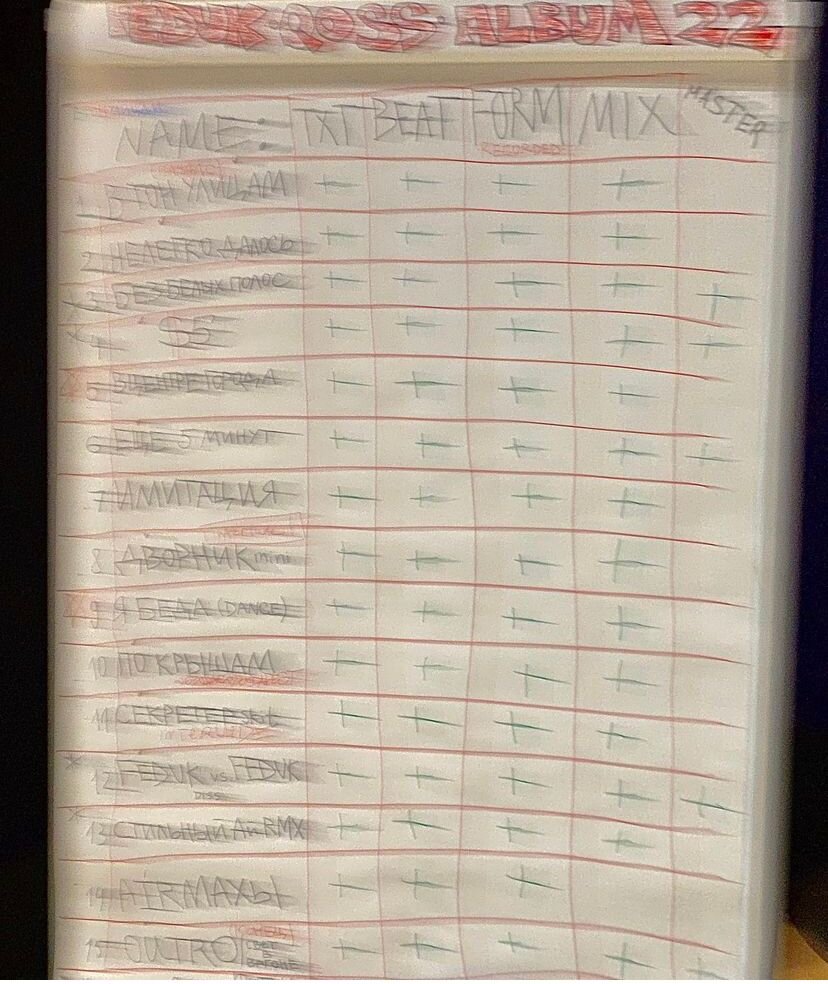 FEDUK·ROSS·ALBUM 22
NAME: TXT BEAT FORM MIX MASTER
RECORDED
1 3-ТОН УЛИЦАМ + + + +
2 НЕЛЕГКО ДАЛОСЬ + + + +
*3 БЕЗ БЕЛЫХ ПОЛОС + + + + +
*4 S5 + + + + +
5 В ЦЕНТРЕ ГОРОДА + + + +
6 ЕЩЕ 5 МИНУТ + + + + +
7 ИМИТАЦИЯ + + + +
8 ДВОРНИК mini + + + +
9 Я БЕДА (DANCE) + + + +
10 ПО КРЫШАМ + + + +
11 СЕКРЕТЕР skit + + + +
INTERLUDE
*12 FEDUK vs. FEDUK + + + + +
DISS
*13 СТИЛЬНЫЙ Ай RMX + + + +
14 AIRМАХЫ + + +
15 OUTRO + + + + +
СВЕТ
В